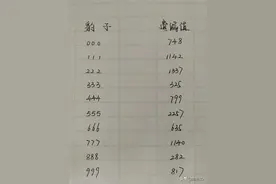 豹子 遗漏值
000 748
111 1142
222 1337
333 525
444 799
555 2257
666 635
777 1140
888 282
999 817